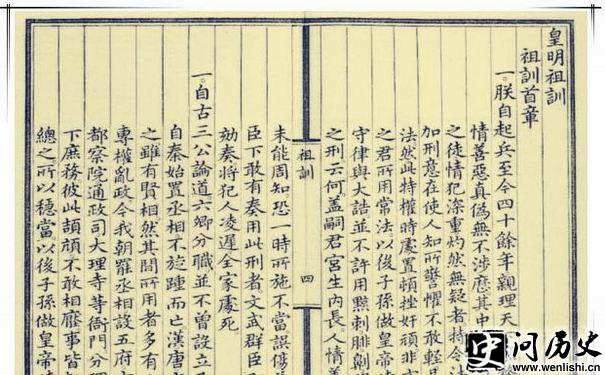 皇明祖訓
祖訓首章
一。朕自起兵至今四十餘年親理天
情善惡真偽無不涉歷其中
之徒情犯深重灼然無疑者特令法
加刑意在使人知所警懼不敢輕
法然此特權時處置頓挫奸頑非
之君所用常法以後子孫做皇帝
守律與大誥並不許用黥刺腓劓
之刑云何蓋嗣君宮生內長人情善
祖訓
四
未能周知恐一時所施不當誤傷
臣下敢有奏用此刑者文武群臣
劾奏將犯人凌遲全家處死
一。自古三公論道六卿分職並不曾設立
自秦始置丞相不旋踵而亡漢唐
之雖有賢相然其間所用者多有
專權亂政今我朝罷丞相設五府
都察院通政司大理寺等衙門分
下庶務彼此頡頏不敢相壓事皆
總之所以穩當以後子孫做皇帝
问历史
www.wenlishi.cn